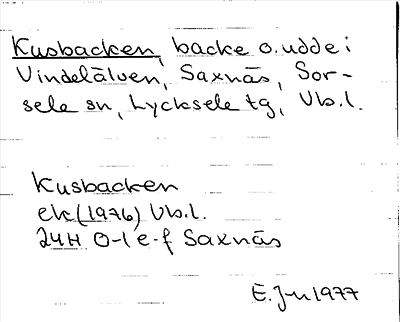 Kusbacken, backe o. udde i
Vindelälven, Saxnäs, Sor-
sele sn, Lycksele tg, Vb.l.
Kusbacken
ek (1976) Vb.l.
24H 0-1 e-f Saxnäs
E. Jn 1977